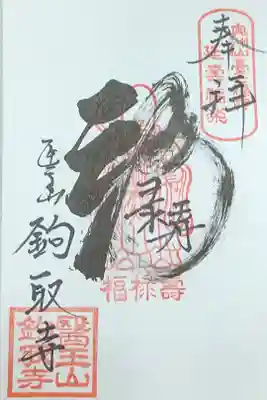 奉拝
福
禄寿
医王山
鈎取寺
福禄壽
醫王山
鈎取寺